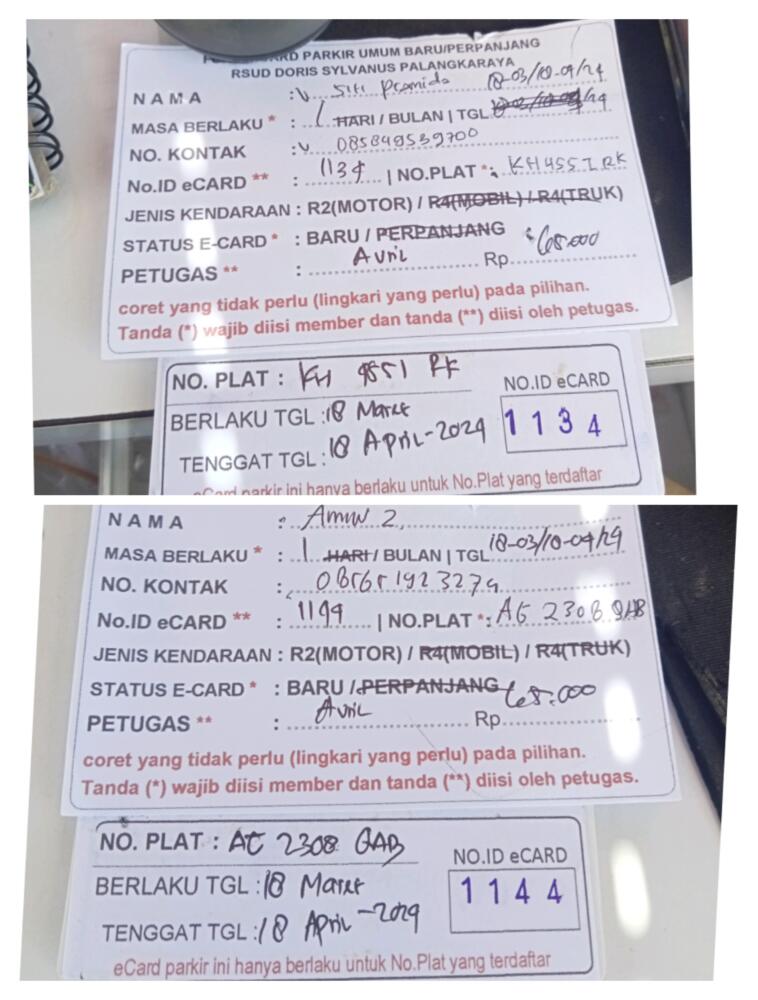 RD PARKIR UMUM BARU/PERPANJANG
RSUD DORIS SYLVANUS PALANGKARAYA
NAMA : Siti 18-03/18-04/24
MASA BERLAKU * : 1 HARI / BULAN | TGL
NO. KONTAK : 085849539700
No.ID eCARD ** : 1134 | NO.PLAT *:
JENIS KENDARAAN : R2(MOTOR) / R4(MOBIL) / R4(TRUK)
STATUS E-CARD * : BARU / PERPANJANG
PETUGAS ** : Avril Rp. 65.000
coret yang tidak perlu (lingkari yang perlu) pada pilihan.
Tanda (*) wajib diisi member dan tanda (**) diisi oleh petugas.
NO. PLAT : KH
NO.ID eCARD
BERLAKU TGL : 18 Maret
1 1 3 4
TENGGAT TGL : 18 April-2024
eCard parkir ini hanya berlaku untuk No.Plat yang terdaftar
NAMA :
MASA BERLAKU * : 1 HARI / BULAN | TGL 18-03/18-04/24
NO. KONTAK :
No.ID eCARD ** : 1144 | NO.PLAT *: AG 2308 GAB
JENIS KENDARAAN : R2(MOTOR) / R4(MOBIL) / R4(TRUK)
STATUS E-CARD * : BARU / PERPANJANG
PETUGAS ** : Avril Rp. 65.000
coret yang tidak perlu (lingkari yang perlu) pada pilihan.
Tanda (*) wajib diisi member dan tanda (**) diisi oleh petugas.
NO. PLAT : AG 2308 GAB
NO.ID eCARD
BERLAKU TGL : 18 Maret
1 1 4 4
TENGGAT TGL : 18 April-2024
eCard parkir ini hanya berlaku untuk No.Plat yang terdaftar